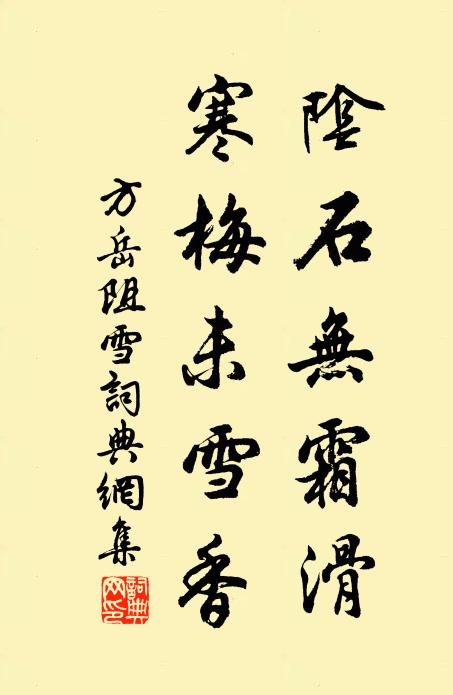 陰石無霜滑
寒梅未雪香
方岳阻雪詞典網集
詞典
网印